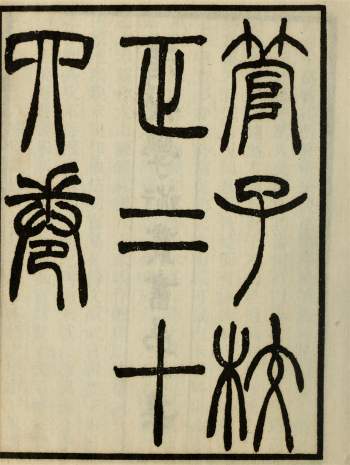 管子校
正二十
四卷